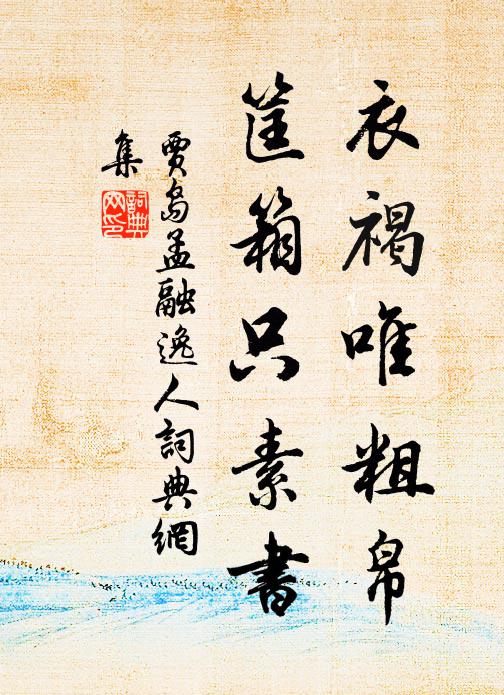 衣褐唯粗帛
筐箱只素書
賈島孟融逸人詞典網
集
詞典网印